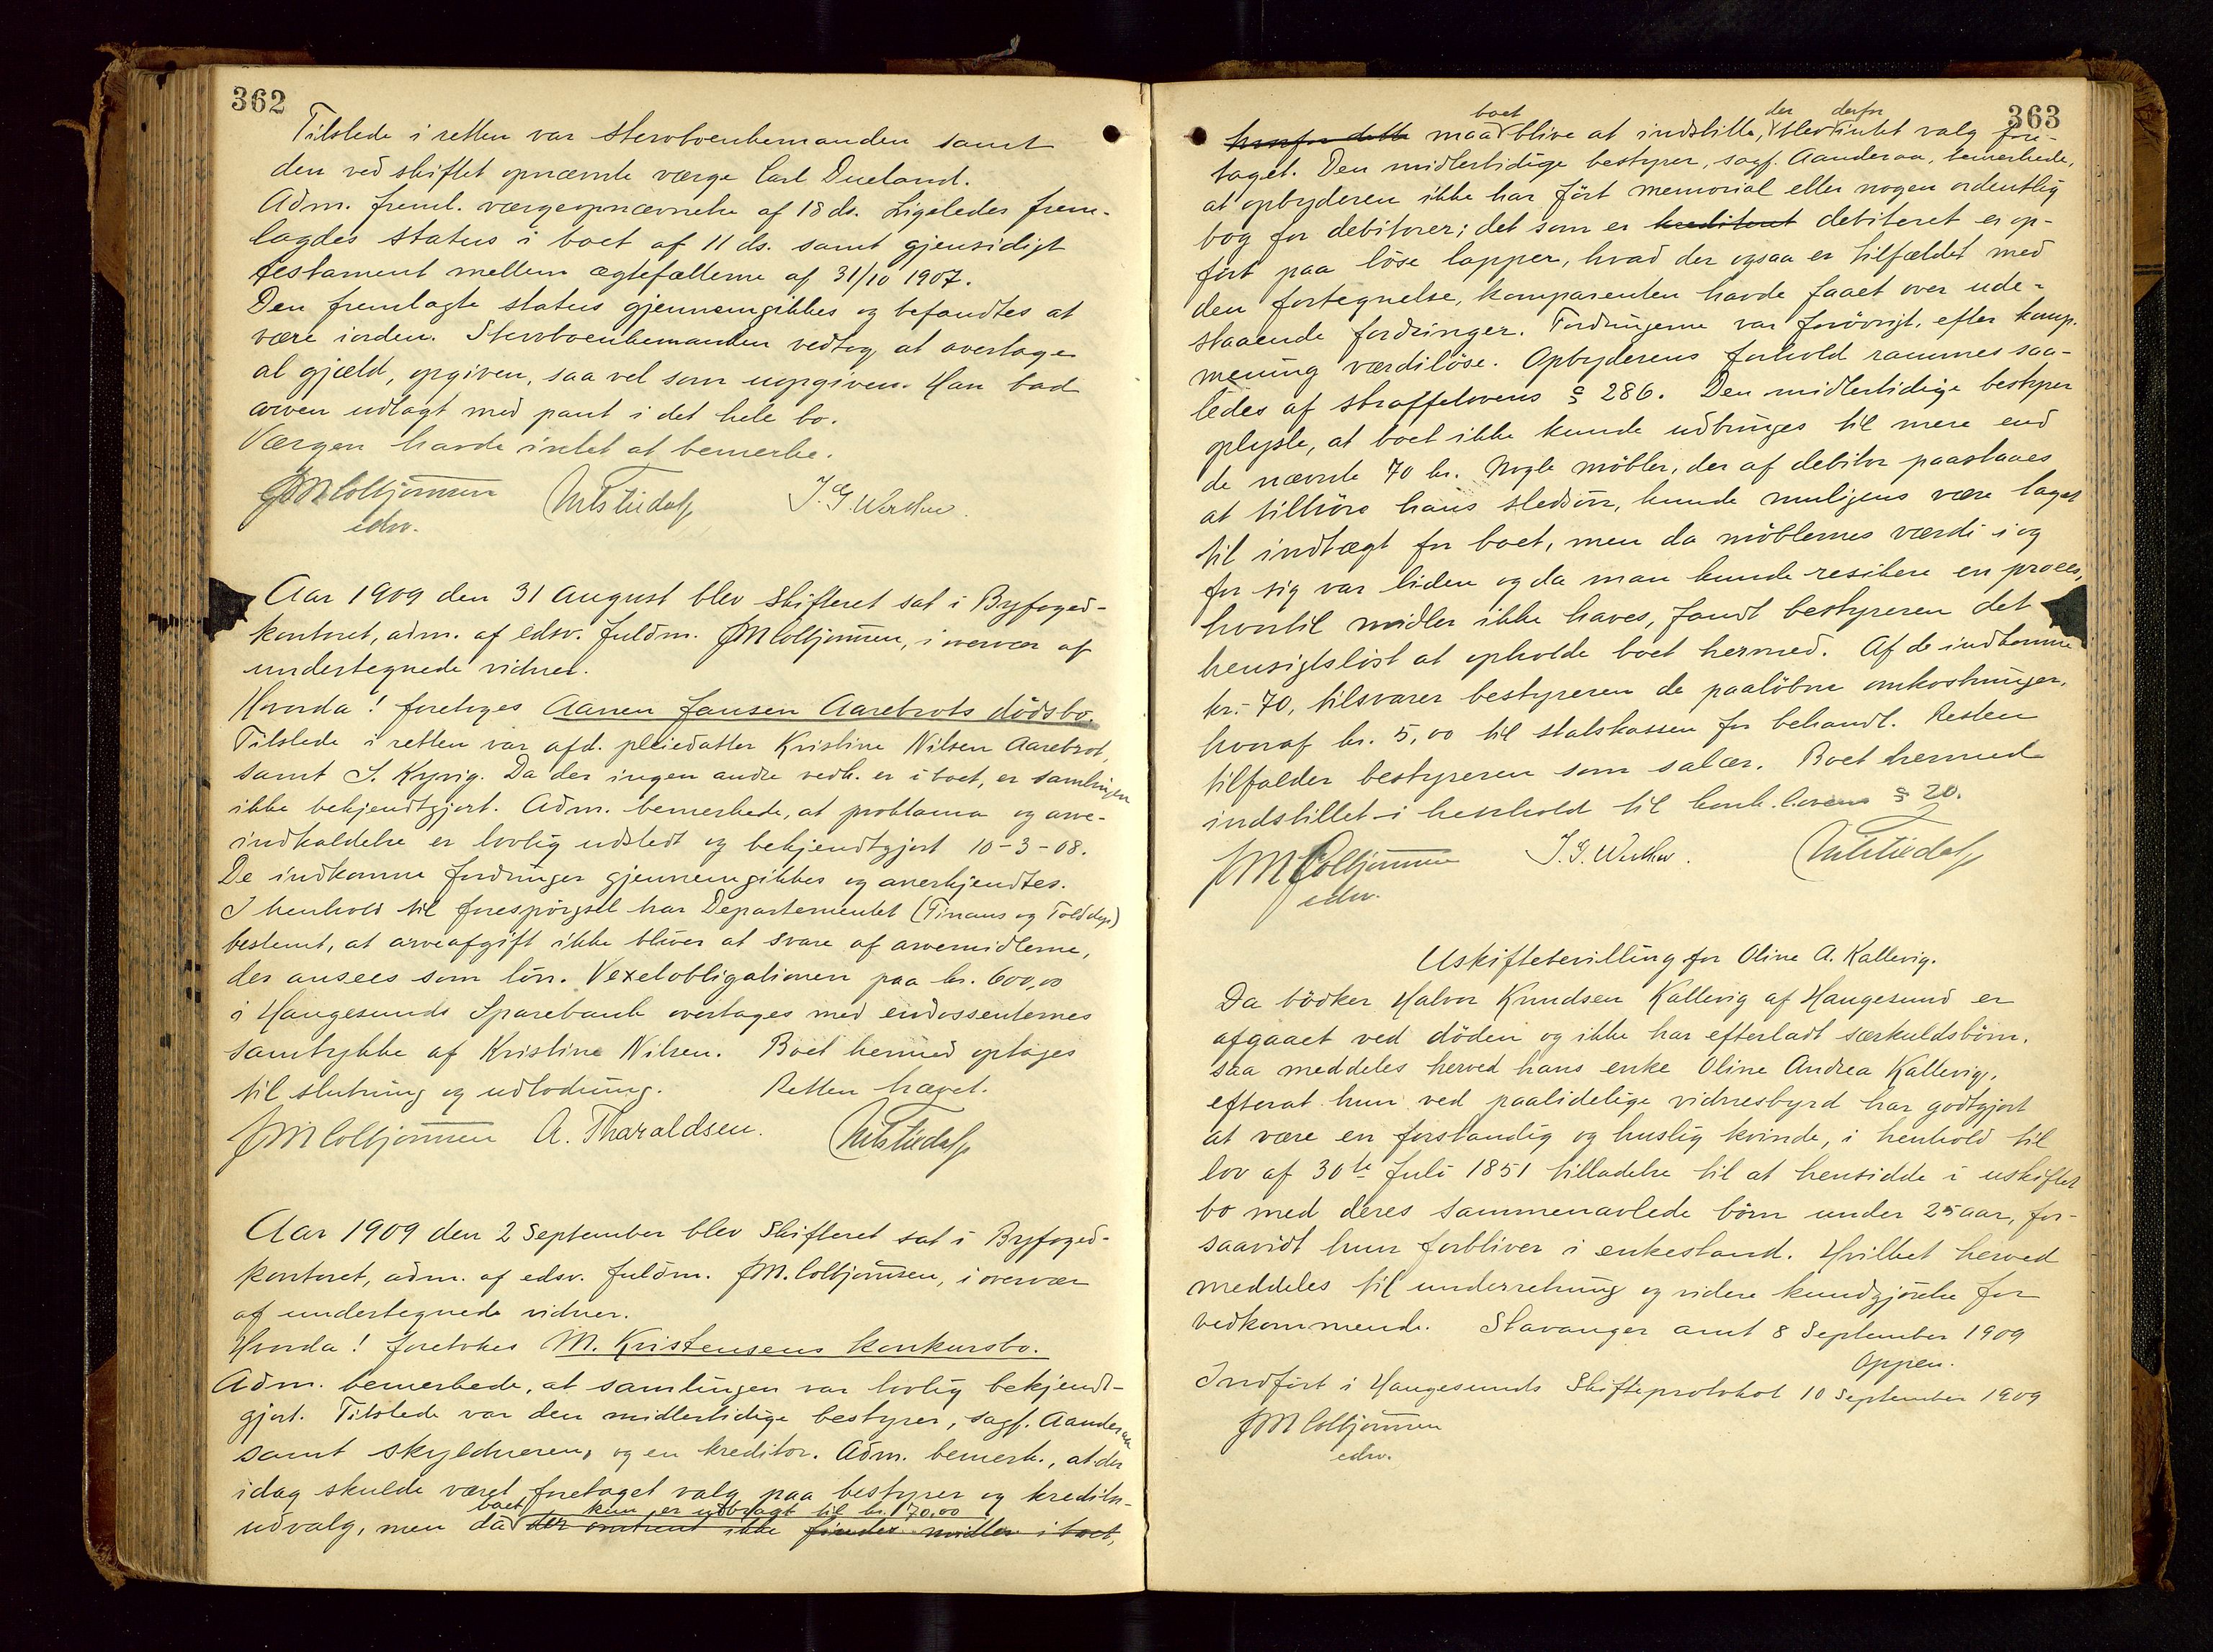 362
Tilstede i retten var stervboenkemanden samt
den ved skiftet opnævnte værge Carl Dueland.
Adm. freml. værgeopnævnelse af 18 ds. Ligeledes frem-
lagdes status i boet af 11 ds. samt gjensidigt
testament mellem ægtefællerne af 31/10 1907.
Den fremlagte status gjennemgikkes og befandtes at
være iorden. Stervboenkemanden vedtog at overtage
al gjæld, opgiven, saa vel som uopgiven. Han bad
arven udlagt med pant i det hele bo.
Værgen havde intet at bemerke.
JM Colbjørnsen J. G. Werther.
edsv.
Aar 1909 den 31 August blev Skifteret sat i Byfoged-
kontoret, adm. af edsv. fuldm. JM Colbjørnsen, i overvær af
undertegnede vidner.
Hvorda! foretoges Aanen Jansen Aarebrots dödsbo.
Tilstede i retten var afd. pleiedatter Kristine Nilsen Aarebrot,
samt S. Kyvig. Da der ingen andre vedk. er i boet, er samlingen
ikke bekjendtgjort. Adm. bemerkede, at proklama og arve-
indkaldelse er lovlig udstedt og bekjendtgjort 10-3-08.
De indkomne fordringer gjennemgikkes og anerkjendtes.
I henhold til forespörgsel har Departementet (Finans og Told dep.)
bestemt, at arveafgift ikke bliver at svare af arvemidlerne,
der ansees som lön. Vexelobligationen paa kr. 600,00
i Haugesunds Sparebank overtages med endossenternes
samtykke af Kristine Nilsen. Boet hermed optages
til slutning og udlodning. Retten hævet.
JM Colbjørnsen A. Tharaldsen.
Aar 1909 den 2 September blev Skifteret sat i Byfoged-
kontoret, adm. af edsv. fuldm. JM. Colbjørnsen, i overvær
af undertegnede vidner.
Hvorda! foretokes M. Kristensens konkursbo.
Adm. bemerkede, at samlingen var lovlig bekjendt-
gjort. Tilstede var den midlertidige bestyrer, sagf. Aanderaa
samt skyldneren, og en kreditor. Adm. bemerk., at der
idag skulde været foretaget valg paa bestyrer og kreditor-
boet kun er udbragt til kr. 70,00
udvalg, men da der ikke findes midler i boet,
363
boet der derfor
maa blive at indstille, blev intet valg fore-
taget. Den midlertidige bestyrer, sagf. Aanderaa, bemerkede,
at opbyderen ikke har fört memorial eller nogen ordentlig
bog for debitorer; det som er krediteret debiteret er op-
fört paa löse lapper, hvad der ogsaa er tilfældet med
den fortegnelse, komparenten havde faaet over ude-
staaende fordringer. Fordringerne var forövrigt, efter komp.
mening værdilöse. Opbyderens forhold rammes saa-
ledes af straffelovens § 286. Den midlertidige bestyrer
oplyste, at boet ikke kunde udbringes til mere end
de nævnte 70 kr. Nogle möbler, der af debitor paastaaes
at tilhöre hans stedsön, kunde muligens være taget
til indtægt for boet, men da möblernes værdi i og
for sig var liden og da man kunde resikere en proces,
hvortil midler ikke haves, fandt bestyreren det
hensigtslöst at opholde boet hermed. Af de indkomne
kr. 70, tilsvarer bestyreren de paalöbne omkostninger,
hvoraf kr. 5,00 til statskassen for behandl. Resten
tilfalder bestyreren som salær. Boet hermed
indstillet i henhold til konk. lovens § 20.
JM Colbjørnsen J. G. Werther.
edsv.
Uskiftebevilling for Oline A. Kallevig.
Da bödker Halvor Knudsen Kallevig af Haugesund er
afgaaet ved döden og ikke har efterladt særkuldsbörn,
saa meddeles herved hans enke Oline Andrea Kallevig,
efterat hun ved paalidelige vidnesbyrd har godtgjort
at være en forstandig og huslig kvinde, i henhold til
lov af 30te Juli 1851 tilladelse til at hensidde i uskiftet
bo med deres sammenavlede börn under 25 aar, for-
saavidt hun forbliver i enkestand. Hvilket herved
meddeles til underretning og videre kundgjörelse for
vedkommende. Stavanger amt 8 September 1909
Oppen.
Indfört i Haugesunds Skifteprotokol 10 September 1909
JM Colbjørnsen
edsv.